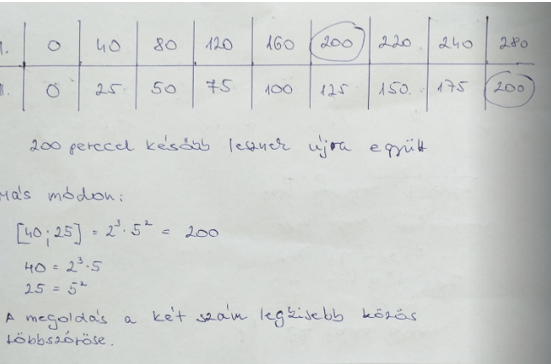 I. 0 40 80 120 160 200 220 240 280
II. 0 25 50 75 100 125 150. 175 200
200 perccel később lesznek újra együtt
Más módon:
[40; 25] = 2³·5² = 200
40 = 2³·5
25 = 5²
A megoldás a két szám legkisebb közös
többszöröse.